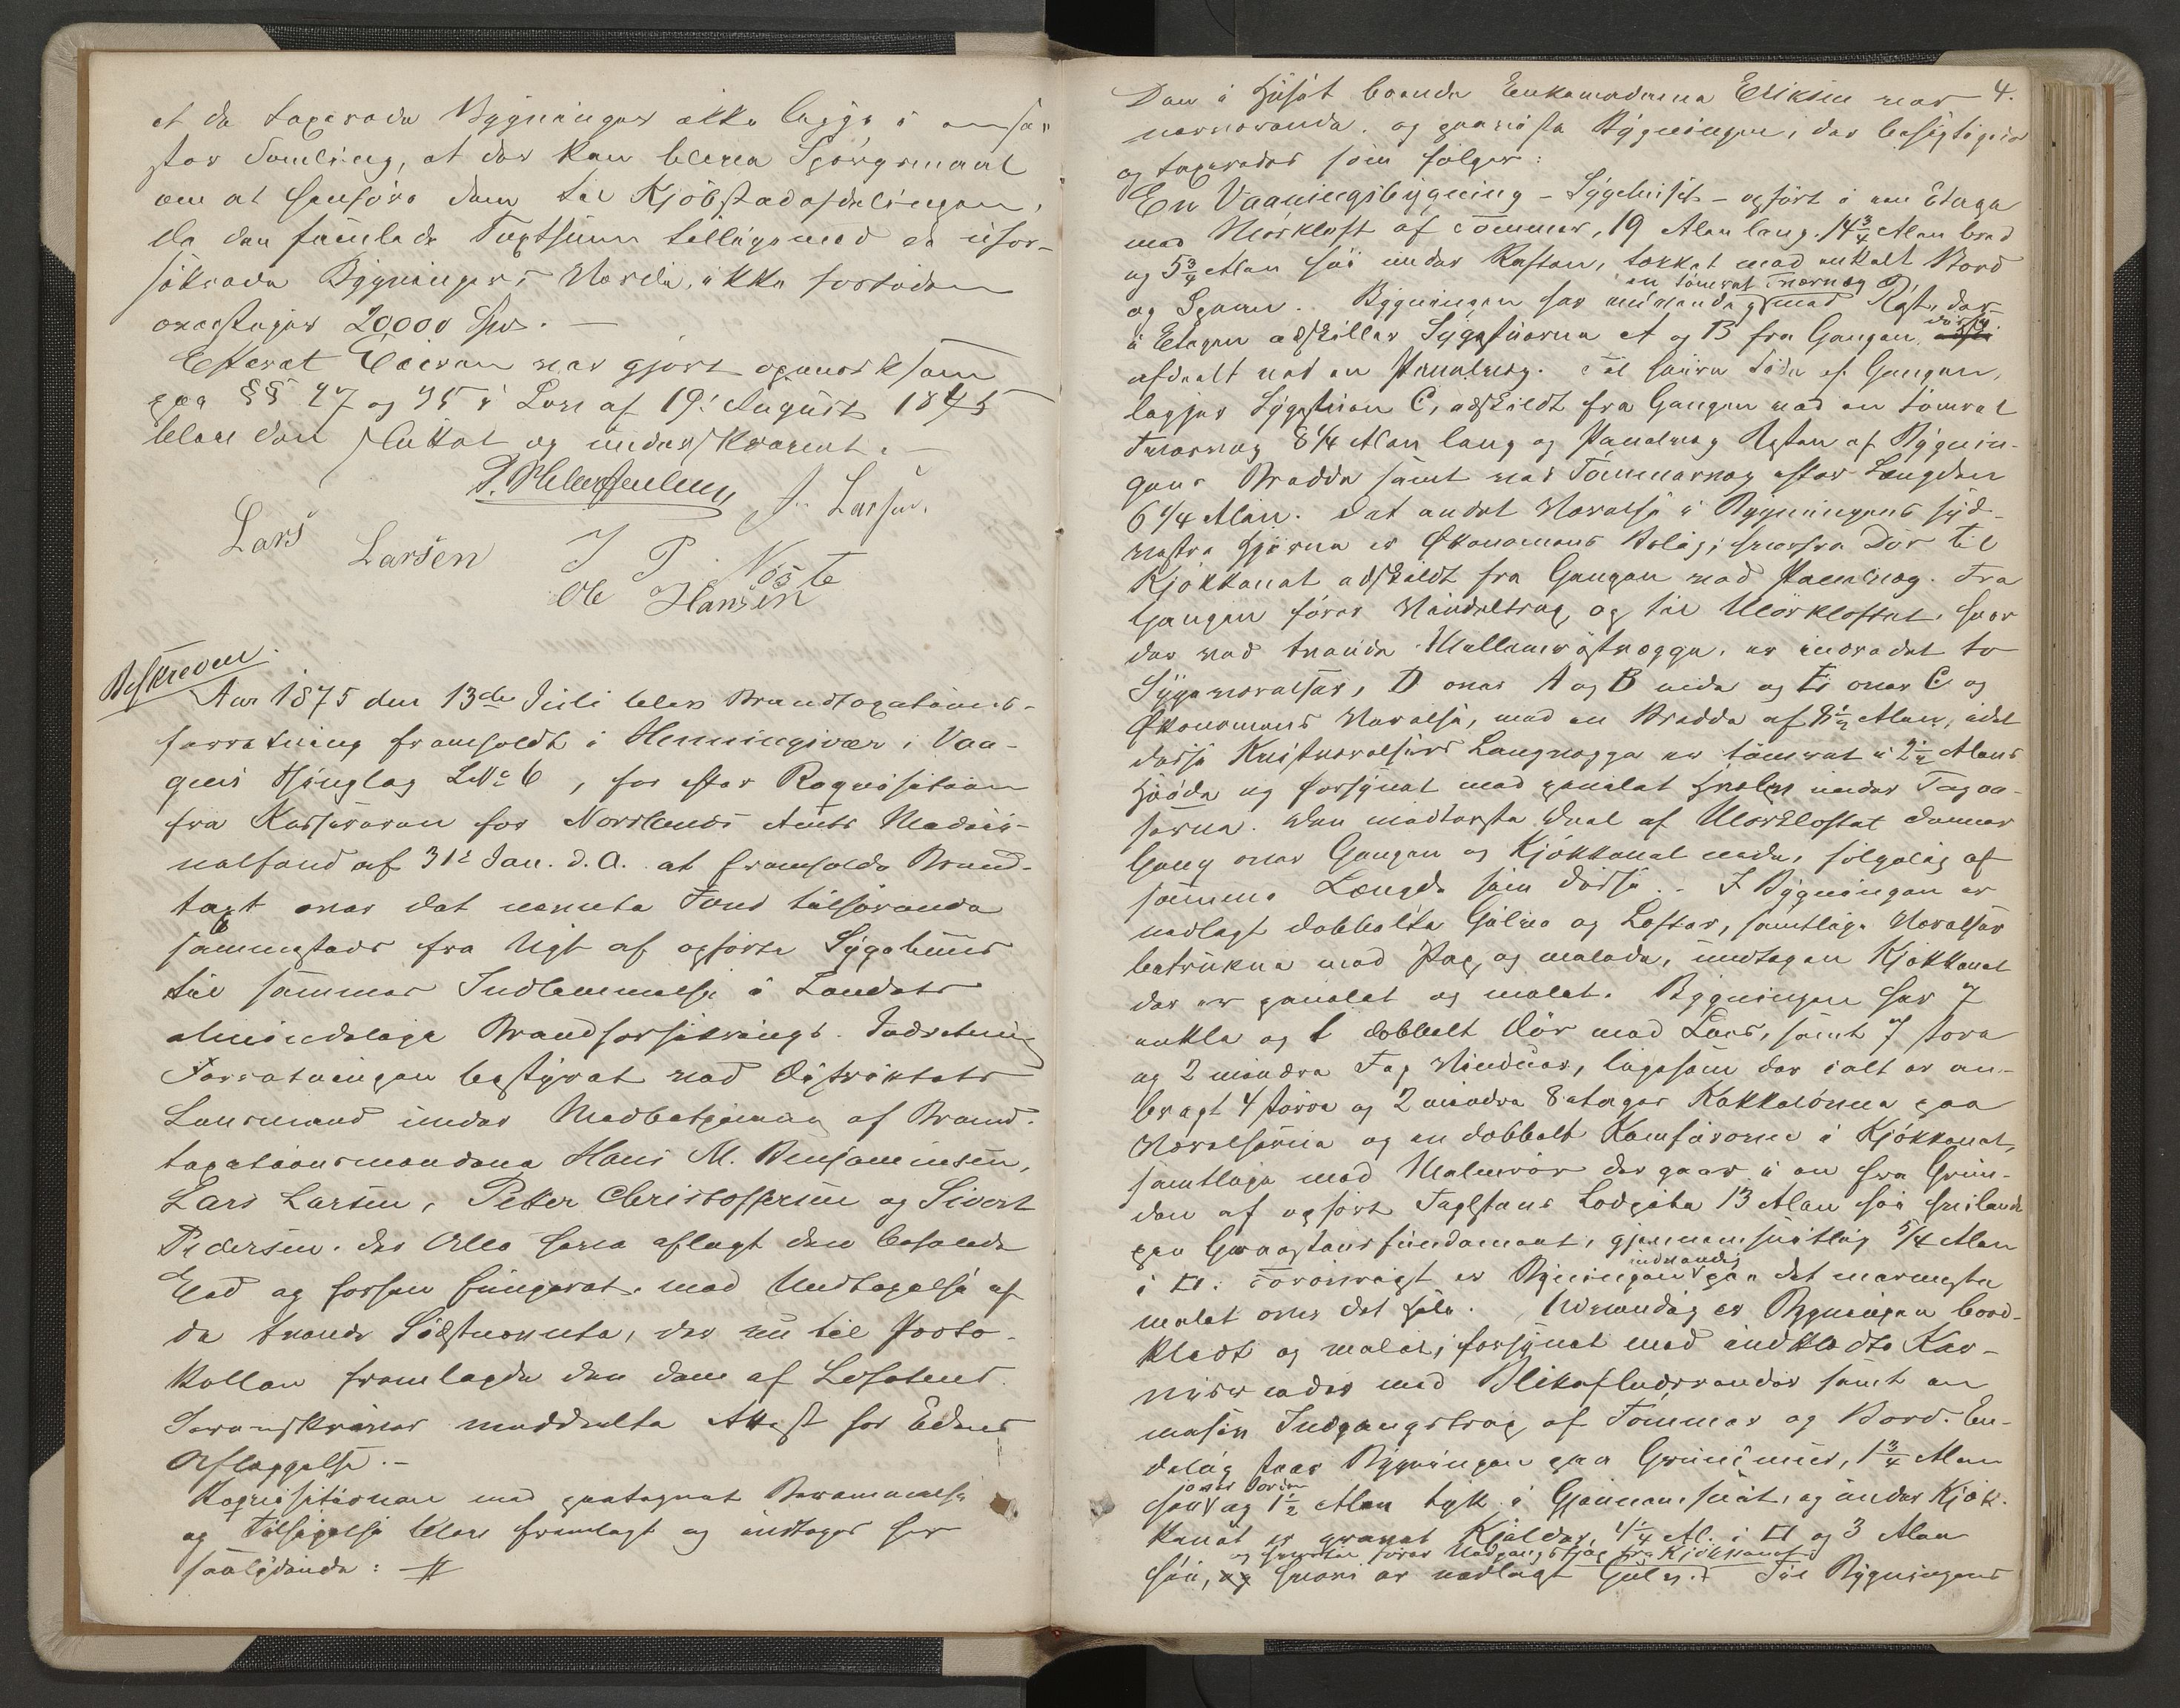 at de taxerede Bygninger ikke ligge i en saa
stor Samling, at der kan blive Spørgsmaal
om at henføre dem til Kjöbstadafdelingen,
da den samlede Taxtsum tilligemed de ufor-
sikrede Bygningers Værdi, ikke for tiden
overstiger 20,000 Spd. —
Efterat Eieren var gjort opmærksom
paa §§ 27 og 35 i Lov af 19. August 1845
blev den sluttet og underskrevet. —
J. Larsen.
Lars Larsen J P. Nöste
Ole Hansen
Beskreven.
Aar 1875 den 13de Juli blev Brandtaxations-
forretning fremholdt i Henningsvær i Vaa-
gens Thinglag LNo 6, for efter Reqvisition
fra Kassereren for Nordlands Amts Medici-
nalfond af 31te Jan. d. A. at fremholde Brand-
taxt over det nævnte Fond tilhørende
sammesteds fra Nyt af opførte Sygehuus
til sammes Indlemmelse i Landets
almindelige Brandforsikrings-Indretning
Forretningen bestyret ved Distriktets
Lensmand under Medbetjening af Brand-
taxationsmændene Hans M. Benjaminsen,
Lars Larsen, Peter Christoffersen og Sivert
Pedersen. der Alle have aflagt den befalede
Eed og forhen fungeret, med Undtagelse af
de tvende Sidstnævnte, der nu til Proto-
kollen fremlagde den dem af Lofotens
Sorenskriver meddeelte Attest for Edens
Aflæggelse. —
Reqvisitionen med paategnet Berammelse
og Tilsigelse blev fremlagt og indtages her
saalydende: #
4.
Den i Huset boende Enkemadame Eriksen var
nærværende, og paaviste Bygningen, der besigtiges
og taxeredes som følger:
En Vaaningsbygning – Sygehuset – opført i een Etage
med Mörkloft af Tömmer, 19 Alen lang, 14 3/4 Alen bred
og 5 3/4 Alen høi under Raften, tækket med enkelt Bord
en tömret Tværvæg og
og Spaan. Bygningen har indvendig med Röst, der
i Etagen adskiller Sygestuerne A og B fra Gangen,
afdeelt ved en Panelvæg. Til høire Side af Gangen,
ligger Sygestuen C, adskildt fra Gangen ved en tömret
Tværvæg 8 1/4 Alen lang og Panelvæg Resten af Bygnin-
gens Bredde samt ved Tömmervæg efter Længden
6 1/4 Alen. Det andet Værelse i Bygningens syd-
vestre Hjörne er Økonomens Bolig, hvorfra Dör til
Kjökkenet adskildt fra Gangen ved Panelvæg. Fra
Gangen förer Vindeltrap, og til Mörkloftet, hvor
der ved tvende Mellemröstvægge, er indredet to
Sygeværelser, D over A og B nede og E over C og
Økonomens Værelse, med en Bredde af 8 1/2 Alen, idet
disse Kvistværelsers Langvægge er tömret i 2 1/2 Alens
Høide og forsynet med panelet Hvælv under Tagaa-
serne. Den midterste Deel af Mörkloftet danner
Gang over Gangen og Kjökkenet nede, følgelig af
samme Længde som disse. – I Bygningen er
nedlagt dobbelte Gulve og Lofter, samtlige Værelser
betrukne med Pap, og malede, undtagen Kjökkenet
der er panelet og malet. Bygningen har 7
enkle og 1 dobbelt Dör med Laas, samt 7 store
og 2 mindre Fag Vinduer, ligesom der ialt er an-
bragt 4 större og 2 mindre 8 etages Kakkelovne paa
Værelserne og en dobbelt Komfurovn i Kjökkenet,
samtlige med Malmrör der gaar i en fra Grun-
den af opført Teglsteens Lodpibe 13 Alen høi hvilende
paa Graastensfundament, gjennemsnitlig 5/4 Alen
indvendig
i □. Forövrigt er Bygningen paa det nærmeste
malet over det Hele. Udvendig er Bygningen bord-
klædt og malet, forsynet med indklædte Kar-
nisser med Blikafløbsrender samt en
massiv Indgangstrap, af Tömmer og Bord. En-
delig staar Bygningen paa Grundmuur, 1 3/4 Alen
høi og 1 1/2 Alen tyk i Gjennemsnit, og under Kjök-
kenet er gravet Kjelder, 4 1/4 Al. i □ og 3 Alen
og hvortil förer Nedgangstrap fra Kjökkenet
høi, hvori er nedlagt Gulv. Til Bygningens